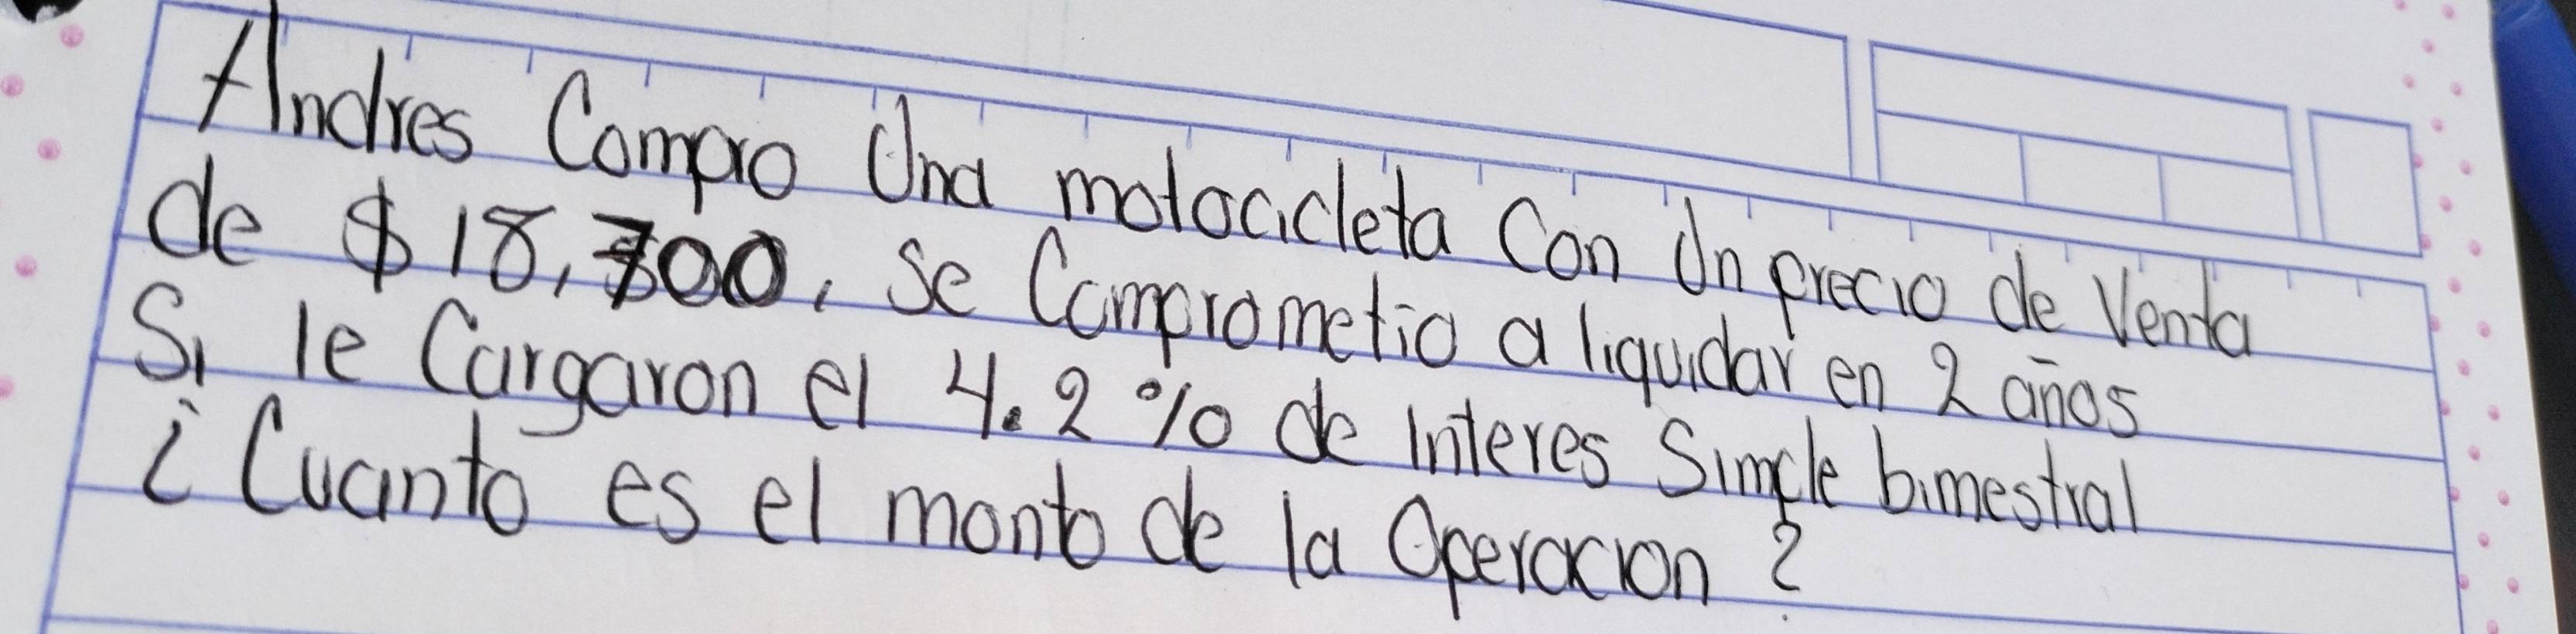 Andres Compro Una motocicleta Con Un precio de Venta
de $18,700, se Comprometio a liquidar en 2 años
Si le Cargaron el 4.2 % de Interes Simple bimestral
¿Cuanto es el monto de la Operacion?